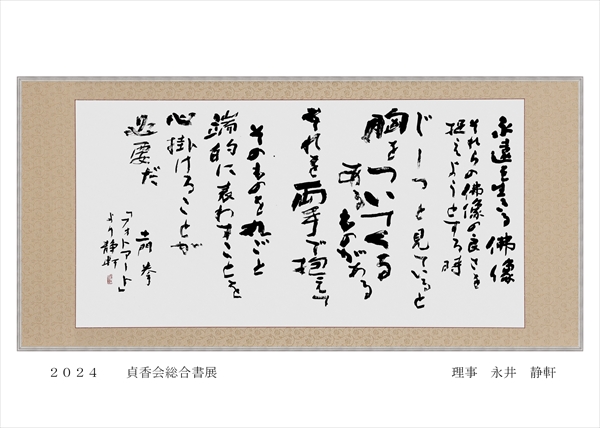 永遠を生きる佛像
それらの佛像の良さを
捉えようとする時
じーっと見ていると
胸をついてくる
あるものがある
それを両手で抱えて
そのものをまれごと
端的に表わすことを
心掛けることが
必要だ
土門拳
「フォトアート」
より静軒
２０２４　貞香会総合書展
理事　永井　静軒